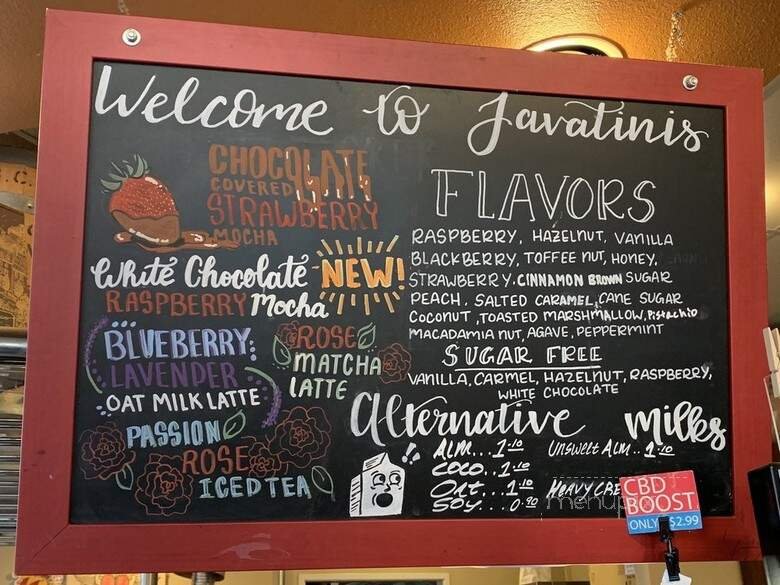 Welcome to Javatinis
CHOCOLATE
COVERED
STRAWBERRY
MOCHA
White Chocolate
RASPBERRY Mocha
NEW!
BLUEBERRY
LAVENDER
OAT MILK LATTE
ROSE
MATCHA
LATTE
PASSION
ROSE
ICED TEA
FLAVORS
RASPBERRY, HAZELNUT, VANILLA
BLACKBERRY, TOFFEE NUT, HONEY,
STRAWBERRY, CINNAMON BROWN SUGAR
PEACH, SALTED CARAMEL, CANE SUGAR
COCONUT, TOASTED MARSHMALLOW, Pistachio
MACADAMIA NUT, AGAVE, PEPPERMINT
SUGAR FREE
VANILLA, CARMEL, HAZELNUT, RASPBERRY,
WHITE CHOCOLATE
Alternative Milks
ALM... 1.10
COCO... 1.10
OAT... 1.10
SOY... 0.90
UNSWEET ALM.. 1.10
HEAVY
CBD
BOOST
ONLY $2.99